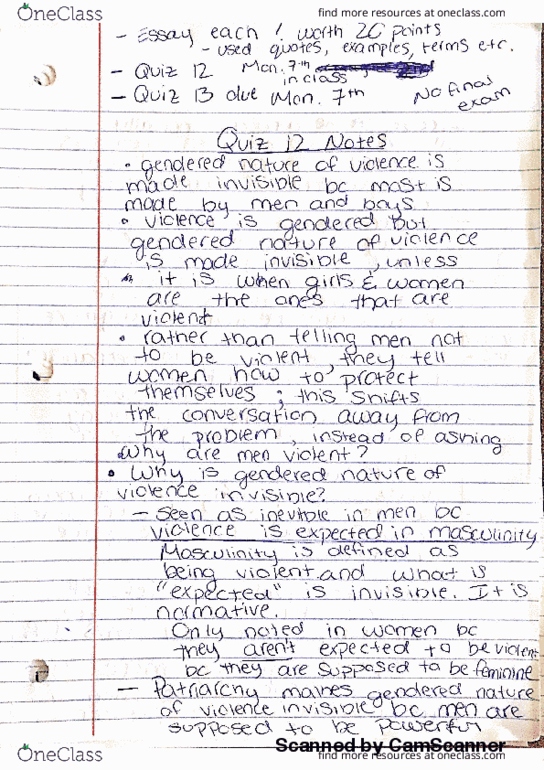 OneClass
find more resources at oneclass.com
- Essay each ! worth 20 points
- used quotes, examples, terms etc.
- Quiz 12 Mon. 7th
in class
- Quiz 13 due Mon. 7th
No final
exam
Quiz 12 Notes
• gendered nature of violence is
made invisible bc most is
made by men and boys
• violence is gendered but
gendered nature of violence
is made invisible, unless
• it is when girls & women
are the ones that are
violent
• rather than telling men not
to be violent, they tell
women how to protect
themselves; this shifts
the conversation away from
the problem, instead of asking
why are men violent?
• Why is gendered nature of
violence invisible?
- Seen as inevitble in men bc
violence is expected in masculinity
Masculinity is defined as
being violent and what is
"expected" is invisible. It is
normative.
Only noted in women bc
they aren't expected to be violent
bc they are supposed to be feminine
- Patriarchy makes gendered nature
of violence invisible bc men are
supposed to be powerful
Scanned by CamScanner
OneClass
find more resources at oneclass.com